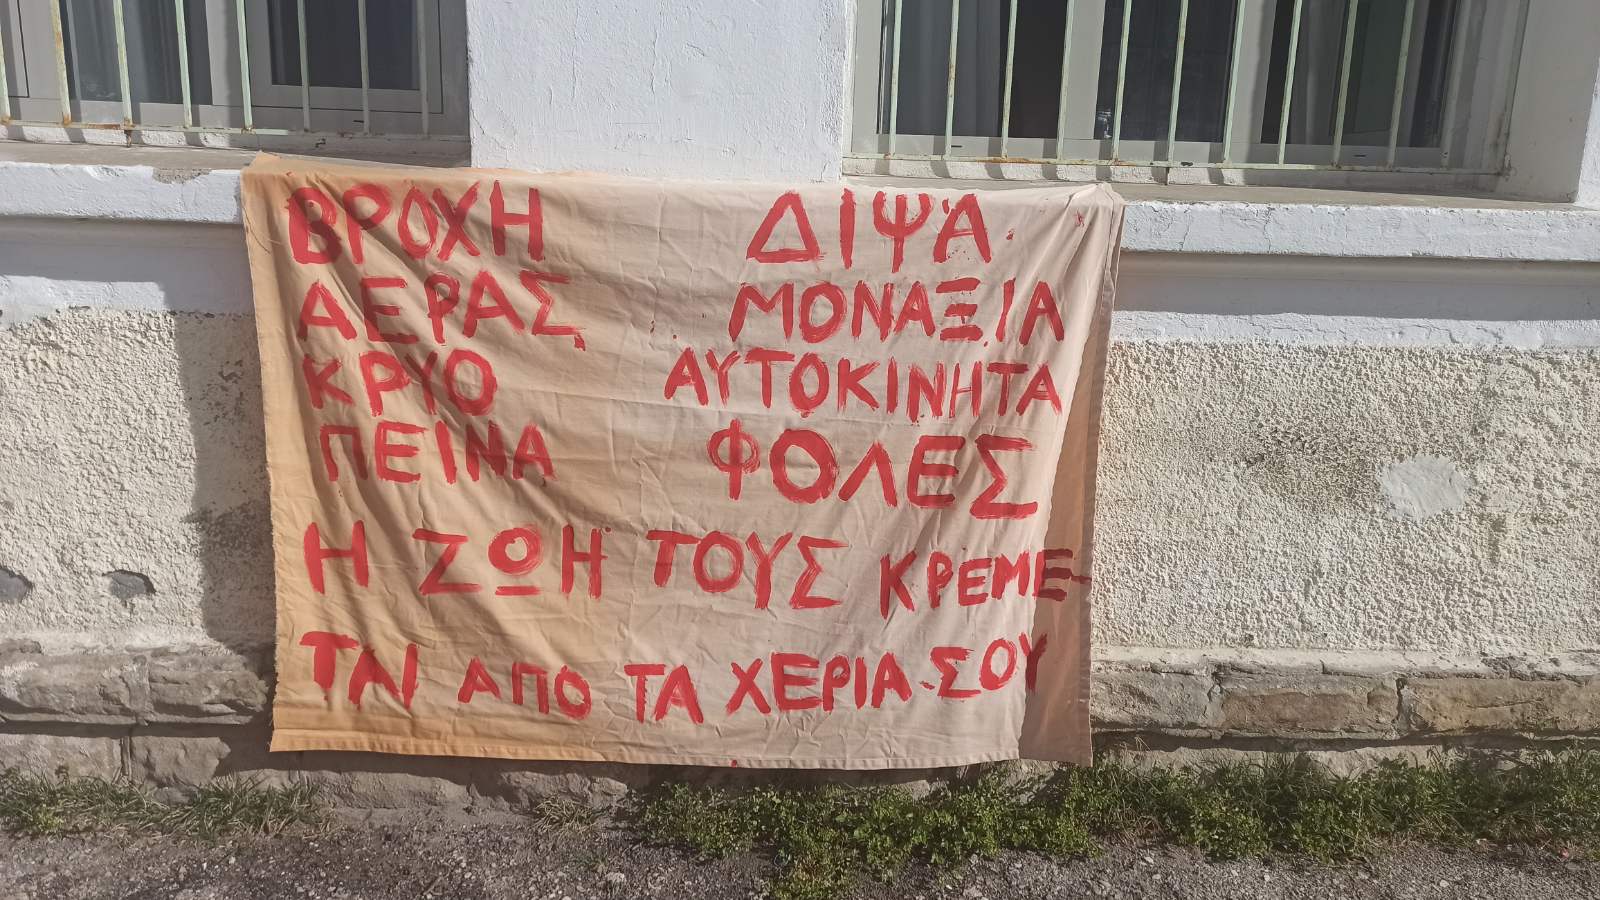 ΒΡΟΧΗ ΔΙΨΑ
ΑΕΡΑΣ ΜΟΝΑΞΙΑ
ΚΡΥΟ ΑΥΤΟΚΙΝΗΤΑ
ΠΕΙΝΑ ΦΟΛΕΣ
Η ΖΩΗ ΤΟΥΣ ΚΡΕΜΕ-
ΤΑΙ ΑΠΟ ΤΑ ΧΕΡΙΑ ΣΟΥ